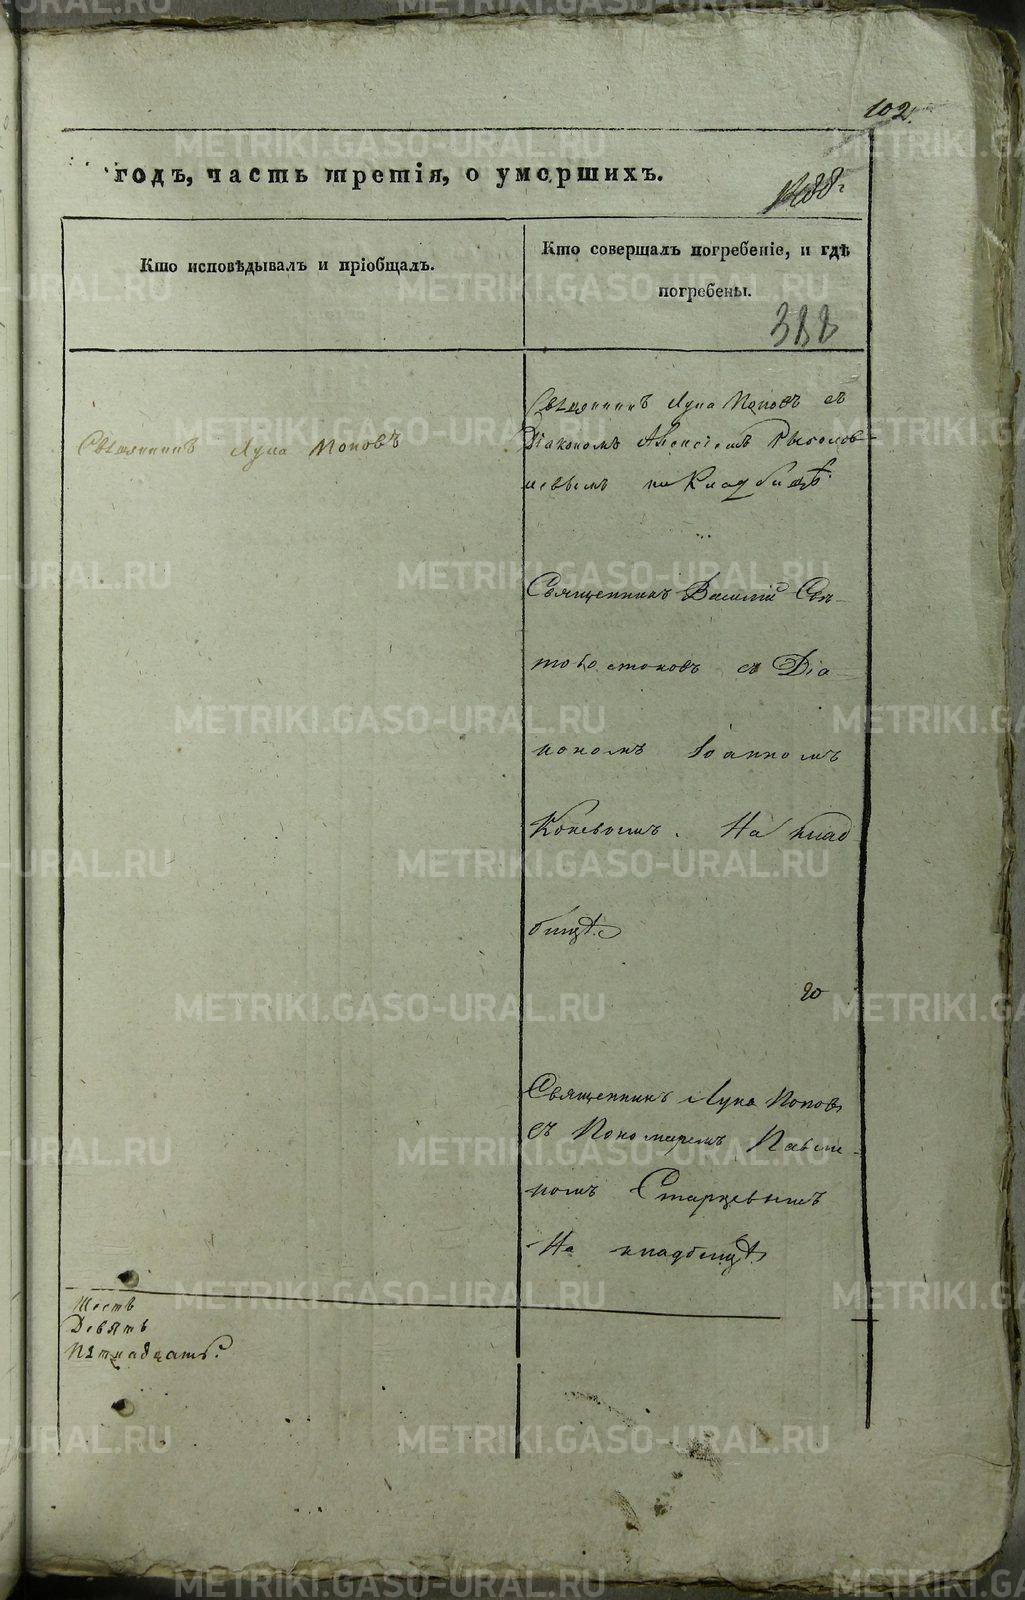 102.
годъ, часть третія, о умершихъ.
Кто исповѣдывалъ и пріобщалъ.
Кто совершалъ погребеніе, и гдѣ
погребены.
388
Священникъ Лука Поповъ
Священникъ Лука Поповъ съ
Діакономъ Алексіемъ Рыболов-
левымъ на Кладбищѣ.
Священникъ Василій
съ Діа-
кономъ Іоанномъ
Коневымъ. На клад
бищѣ.
20
Священникъ Лука Поповъ
съ Пономаремъ
Старцевымъ
На кладбищѣ.
Шесть
Девять
Пятнадцать.
METRIKI.GASO-URAL.RU